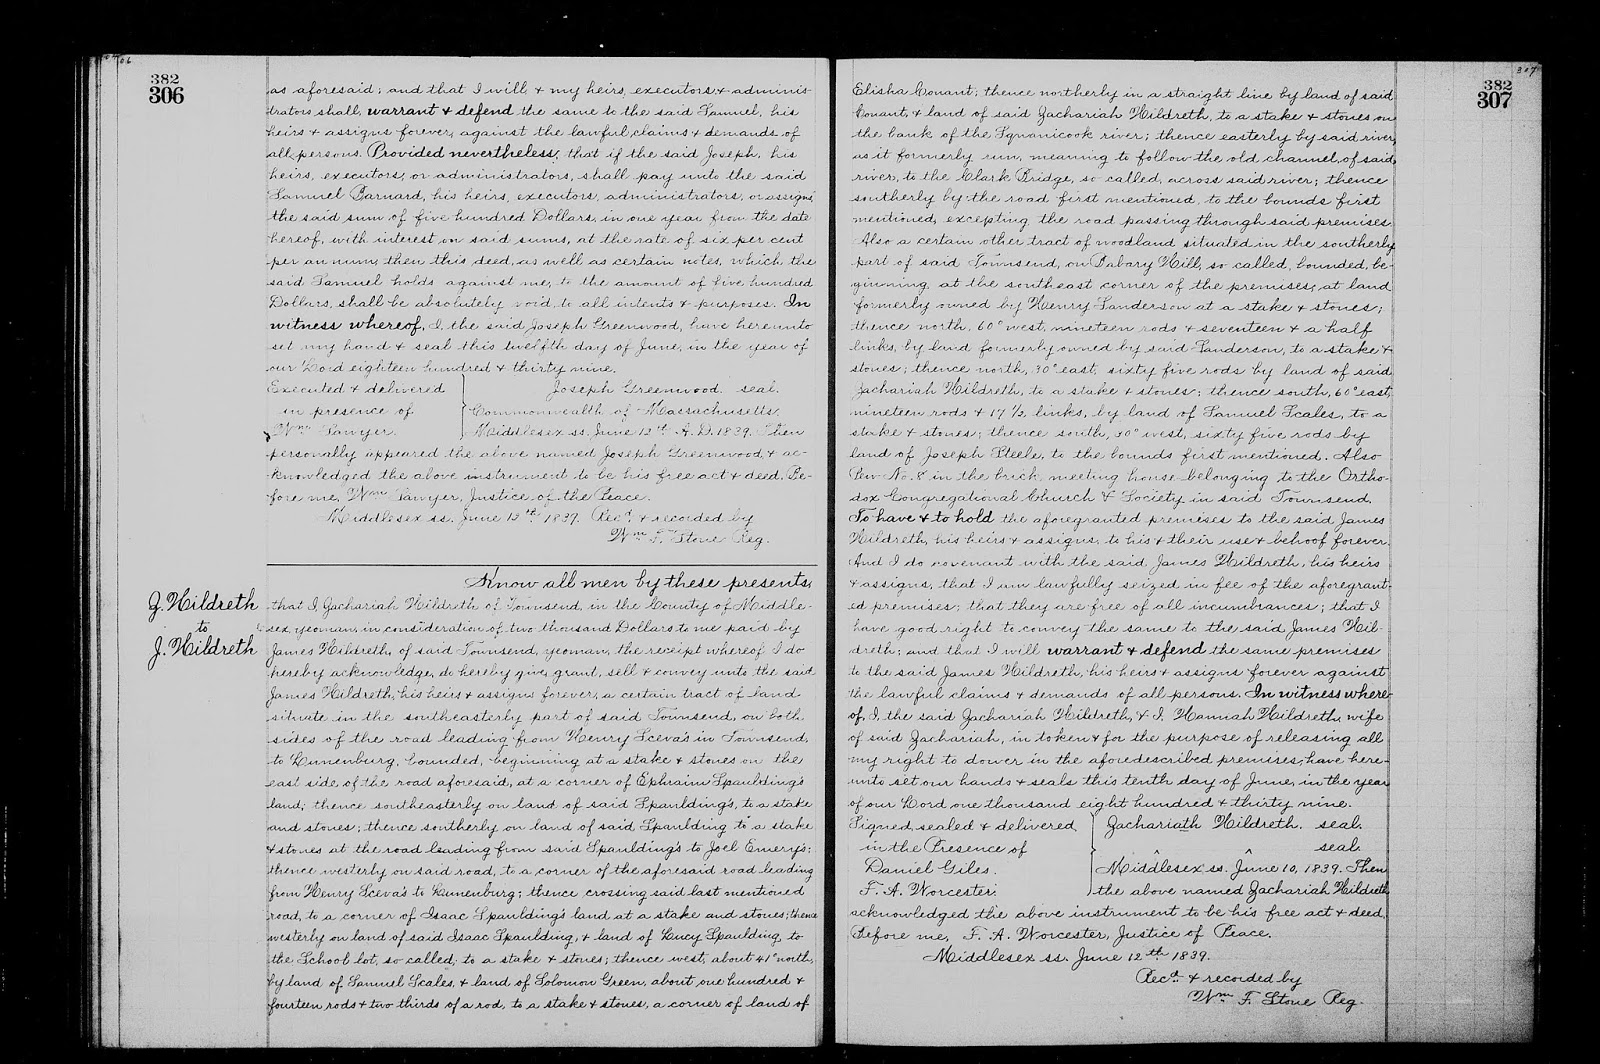 306
382
306
as aforesaid; and that I will & my heirs, executors & adminis-
trators shall, warrant & defend the same to the said Samuel, his
heirs & assigns forever, against the lawful claims & demands of
all persons. Provided nevertheless, that if the said Joseph, his
heirs, executors, or administrators, shall pay unto the said
Samuel Barnard, his heirs, executors, administrators, or assigns
the said sum of five hundred Dollars, in one year from the date
hereof, with interest on said sums, at the rate of six per cent
per annum, then this deed, as well as certain notes, which the
said Samuel holds against me, to the amount of five hundred
Dollars, shall be absolutely void to all intents & purposes. In
witness whereof, I, the said Joseph Greenwood, have hereunto
set my hand & seal this twelfth day of June, in the year of
our Lord eighteen hundred & thirty nine.
Executed & delivered Joseph Greenwood. seal.
in presence of Commonwealth of Massachusetts.
Wm Sawyer. Middlesex ss. June 12th A.D. 1839. Then
personally appeared the above named Joseph Greenwood, & ac-
knowledged the above instrument to be his free act & deed. Be-
fore me, Wm Sawyer, Justice of the Peace.
Middlesex ss. June 12th 1839. Recd & recorded by
Wm F. Stone Reg.
Know all men by these presents,
Z. Hildreth
to
J. Hildreth
that I, Zachariah Hildreth of Townsend, in the County of Middle-
sex, yeoman, in consideration of two thousand Dollars to me paid by
James Hildreth, of said Townsend, yeoman, the receipt whereof I do
hereby acknowledge, do hereby give, grant, sell & convey unto the said
James Hildreth, his heirs & assigns forever, a certain tract of land
situate in the southeasterly part of said Townsend, on both
sides of the road leading from Henry Sceva's in Townsend,
to Lunenburg, bounded, beginning at a stake & stones on the
east side of the road aforesaid, at a corner of Ephraim Spaulding's
land; thence southeasterly on land of said Spaulding's, to a stake
and stones; thence southerly on land of said Spaulding to a stake
& stones at the road leading from said Spaulding's to Joel Emery's;
thence westerly on said road, to a corner of the aforesaid road leading
from Henry Sceva's to Lunenburg; thence crossing said last mentioned
road, to a corner of Isaac Spaulding's land at a stake and stones; thence
westerly on land of said Isaac Spaulding, & land of Lucy Spaulding, to
the School lot, so called; to a stake & stones; thence west, about 41° north,
by land of Samuel Scales, & land of Solomon Green, about one hundred &
fourteen rods & two thirds of a rod, to a stake & stones, a corner of land of
307
382
307
Elisha Conant; thence northerly in a straight line by land of said
Conant, & land of said Zachariah Hildreth, to a stake & stones on
the bank of the Squanicook river; thence easterly by said river,
as it formerly run, meaning to follow the old channel, of said
river, to the Clark Bridge, so called, across said river; thence
southerly by the road first mentioned, to the bounds first
mentioned, excepting the road passing through said premises.
Also a certain other tract of woodland situated in the southerly
part of said Townsend, on Babary Hill, so called, bounded, be-
ginning at the southeast corner of the premises, at land
formerly owned by Henry Sanderson at a stake & stones;
thence north, 60° west, nineteen rods & seventeen & a half
links, by land formerly owned by said Sanderson, to a stake &
stones; thence north, 30° east, sixty five rods by land of said
Zachariah Hildreth, to a stake & stones; thence south, 60° east,
nineteen rods & 17 1/2 links, by land of Samuel Scales, to a
stake & stones; thence south, 30° west, sixty five rods by
land of Joseph Steele, to the bounds first mentioned. Also
Pew No. 8 in the brick meeting house belonging to the Ortho-
dox Congregational Church & Society in said Townsend.
To have & to hold the aforegranted premises to the said James
Hildreth, his heirs & assigns, to his & their use & behoof forever.
And I do covenant with the said, James Hildreth, his heirs
& assigns, that I am lawfully seized in fee of the aforegrant-
ed premises; that they are free of all incumbrances; that I
have good right to convey the same to the said James Hil-
dreth; and that I will warrant & defend the same premises
to the said James Hildreth, his heirs & assigns forever against
the lawful claims & demands of all persons. In witness where-
of, I, the said Zachariah Hildreth, & I, Hannah Hildreth, wife
of said Zachariah, in token & for the purpose of releasing all
my right to dower in the aforedescribed premises, have here-
unto set our hands & seals this tenth day of June, in the year
of our Lord one thousand eight hundred & thirty nine.
Signed, sealed & delivered Zachariath Hildreth. seal.
in the Presence of seal.
Daniel Giles. Middlesex ss. June 10, 1839. Then
F. A. Worcester. the above named Zachariah Hildreth
acknowledged the above instrument to be his free act & deed,
Before me, F. A. Worcester, Justice of Peace.
Middlesex ss. June 12th 1839.
Recd & recorded by
Wm F. Stone Reg.